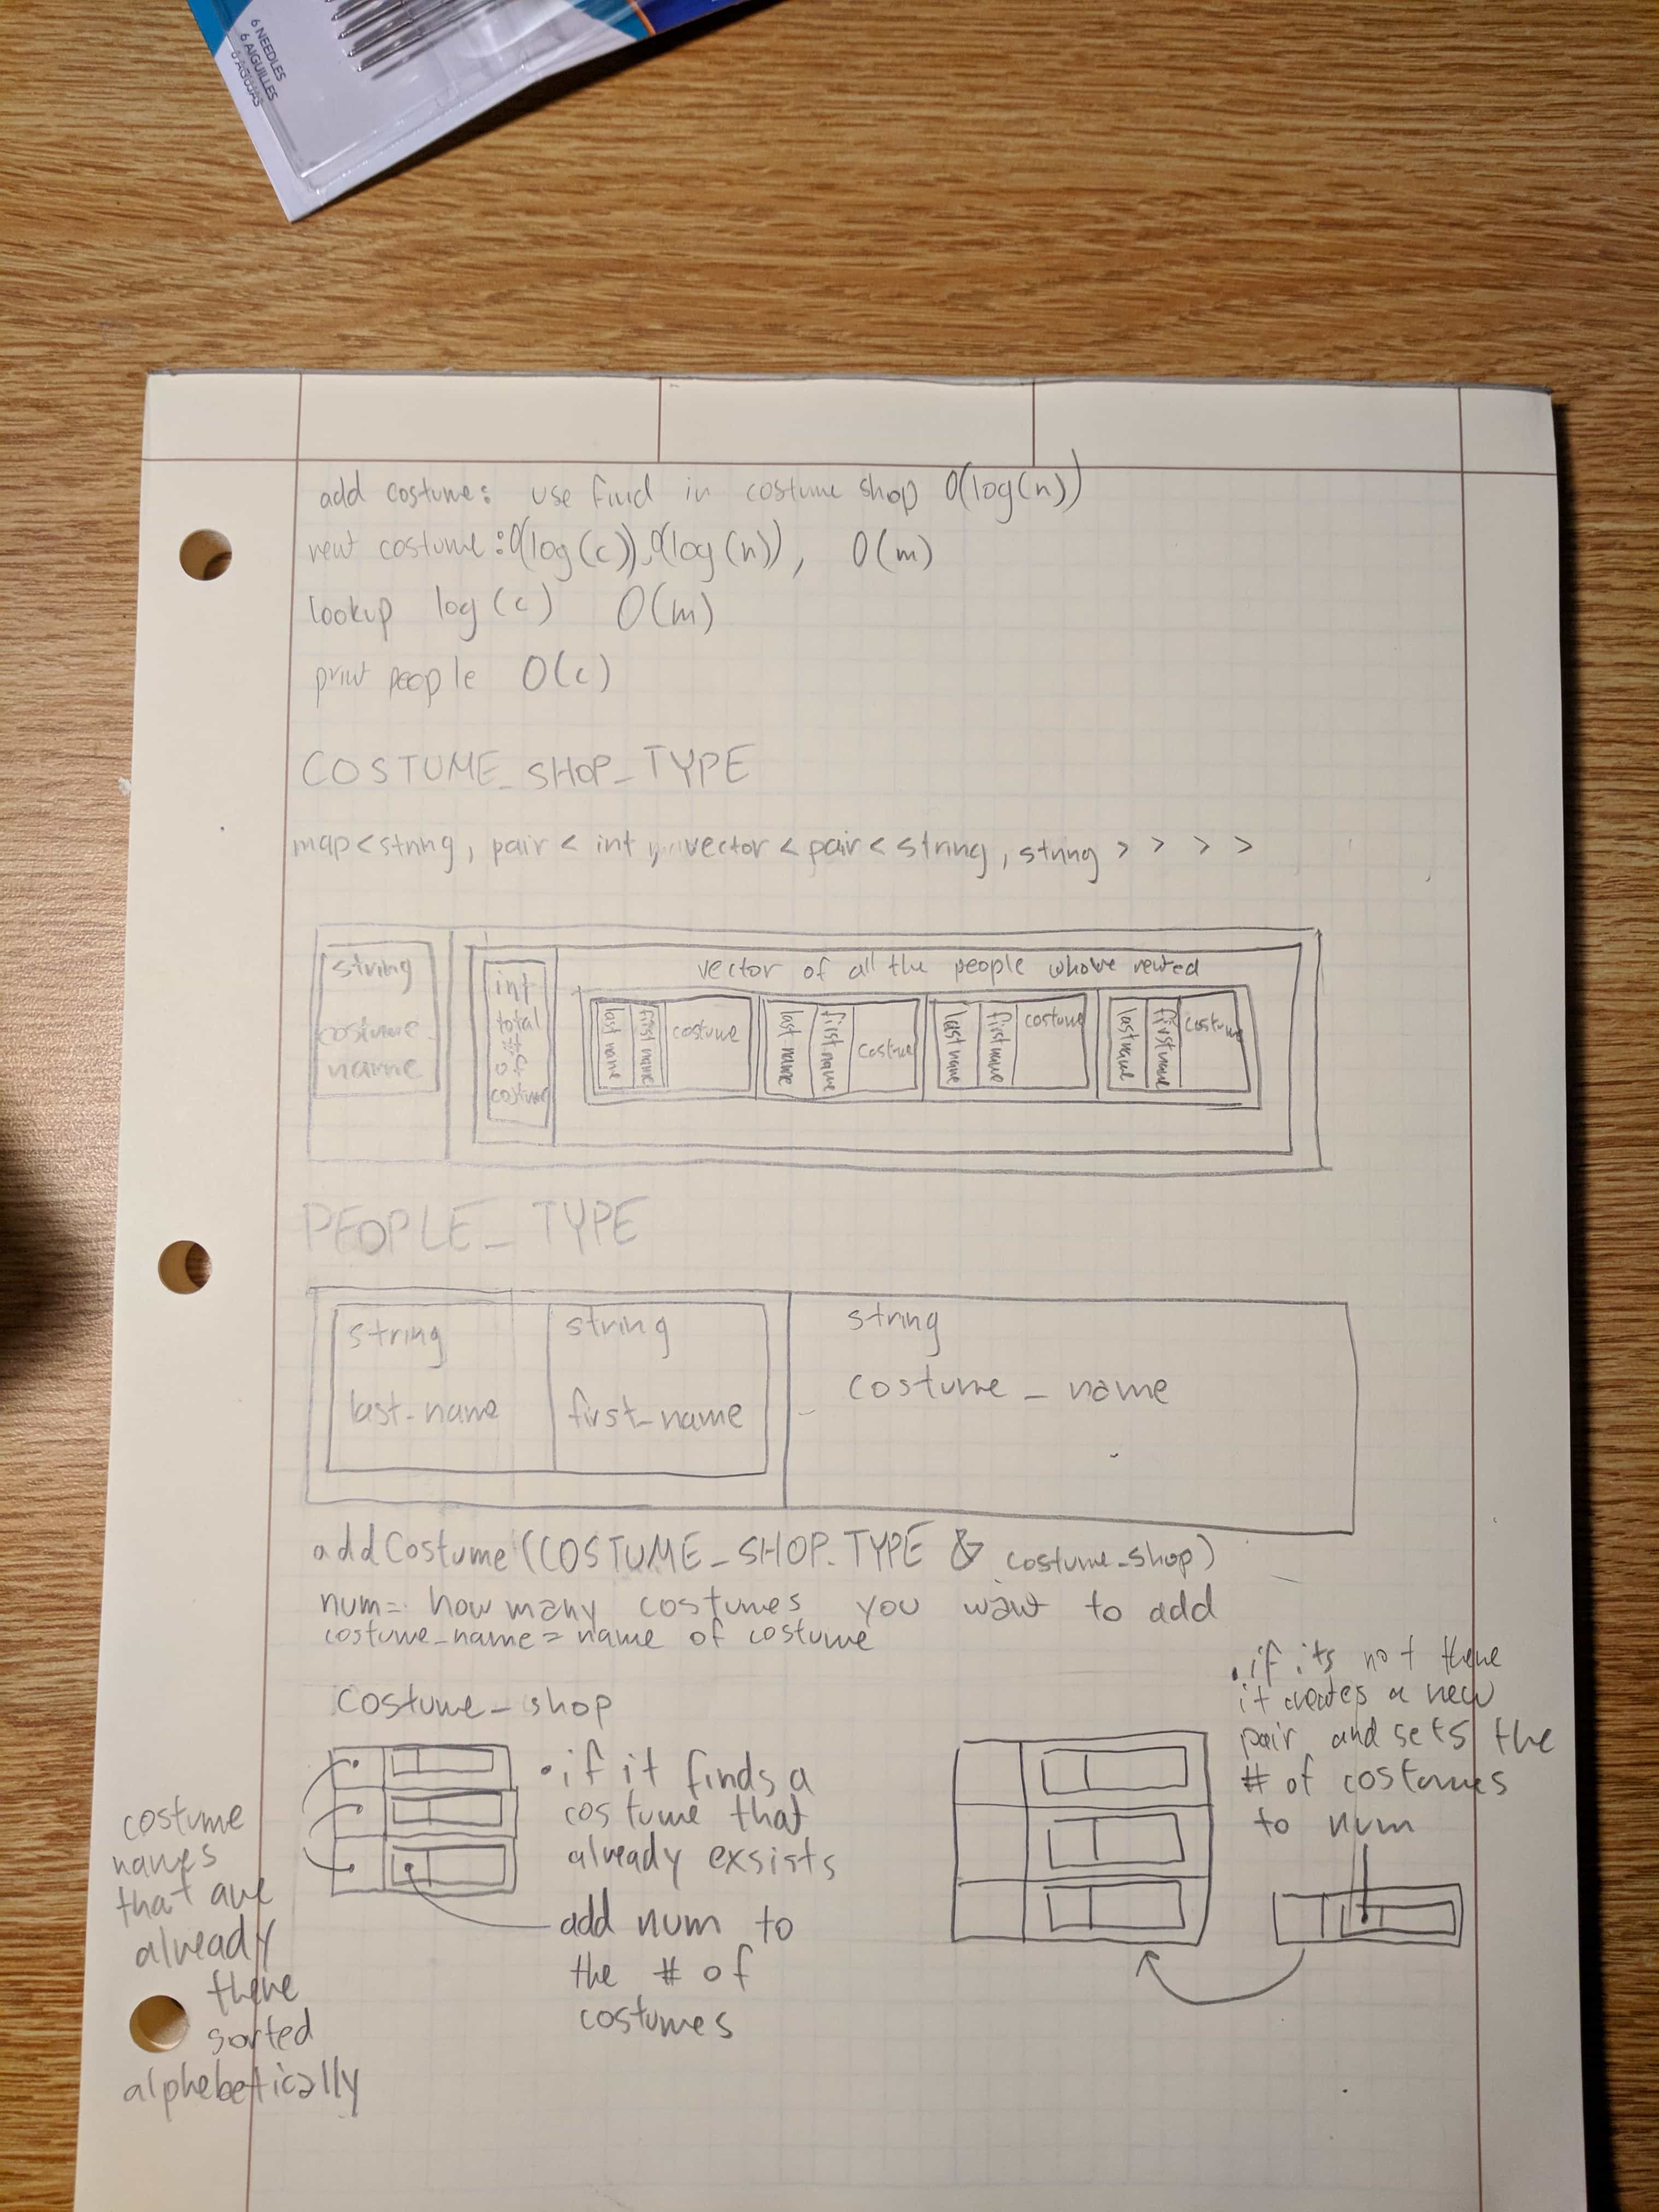 6 NEEDLES
6 AIGUILLES
6 AGUJAS
add costume: use find in costume shop O(log(n))
rent costume: O(log(c)), O(log(n)), O(m)
lookup log(c) O(m)
print people O(c)
COSTUME_SHOP_TYPE
map<string, pair< int, vector< pair< string, string > > > >
string
costume
name
int
total
# of
costume
vector of all the people whove rented
last name
first name
costume
last name
first name
costume
last name
first name
costume
last name
first name
costume
PEOPLE_TYPE
string
last_name
string
first_name
string
costume_name
addCostume(COSTUME_SHOP_TYPE & costume_shop)
num= how many costumes you want to add
costume_name= name of costume
costume_shop
costume
names
that are
already
there
sorted
alphebetically
• if it finds a
costume that
already exsists
add num to
the # of
costumes
• if its not there
it creates a new
pair and sets the
# of costumes
to num